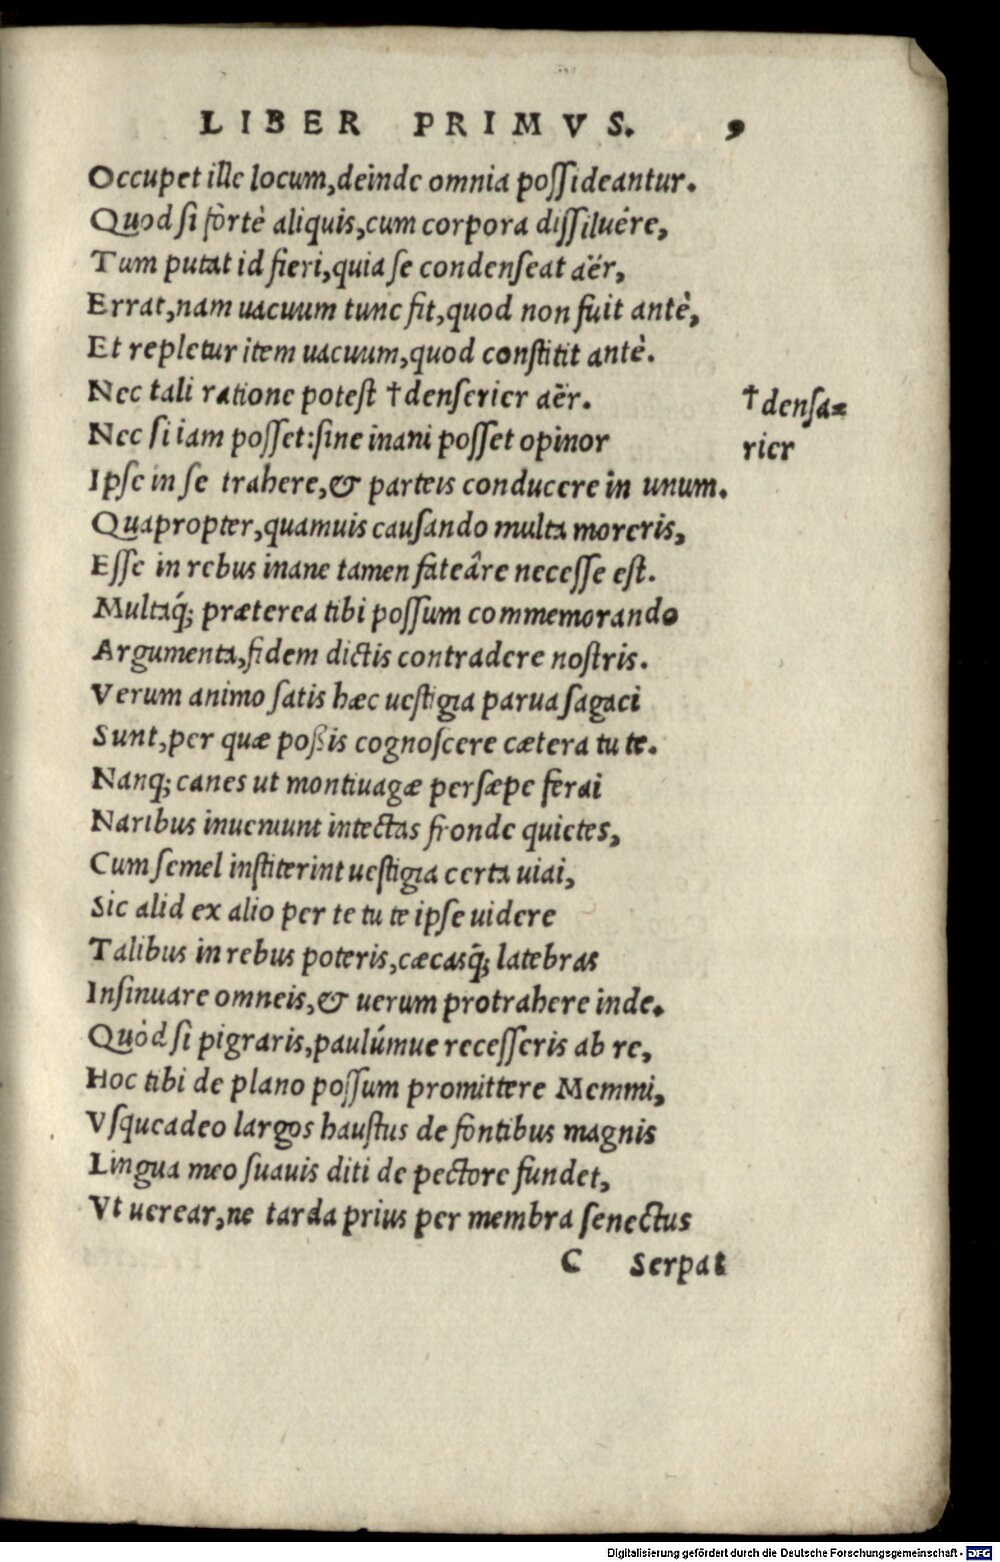 LIBER PRIMVS. 9
Occupet ille locum,deinde omnia poſſideantur.
Quod ſi fortè aliquis,cum corpora diſſiluêre,
Tum putat id fieri,quia ſe condenſeat aër,
Errat,nam uacuum tunc fit,quod non fuit antè,
Et repletur item uacuum,quod conſtitit antè.
Nec tali ratione poteſt †denſerier aër. †denſa=
Nec ſi iam poſſet:ſine inani poſſet opinor rier
Ipſe in ſe trahere,& parteis conducere in unum.
Quapropter,quamuis cauſando multa moreris,
Eſſe in rebus inane tamen fateâre neceſſe eſt.
Multaq́; præterea tibi poſſum commemorando
Argumenta,fidem dictis contradere noſtris.
Verum animo ſatis hæc ueſtigia parua ſagaci
Sunt,per quæ poßis cognoſcere cætera tu te.
Nanq; canes ut montiuagæ perſæpe ferai
Naribus inueniunt intectas fronde quietes,
Cum ſemel inſtiterint ueſtigia certa uiai,
Sic alid ex alio per te tu te ipſe uidere
Talibus in rebus poteris,cæcasq́; latebras
Inſinuare omneis,& uerum protrahere inde.
Quòd ſi pigraris,paulúmue receſſeris ab re,
Hoc tibi de plano poſſum promittere Memmi,
Vſqueadeo largos hauſtus de fontibus magnis
Lingua meo ſuauis diti de pectore fundet,
Vt uerear,ne tarda prius per membra ſenectus
C Serpat
Digitalisierung gefördert durch die Deutsche Forschungsgemeinschaft - DFG